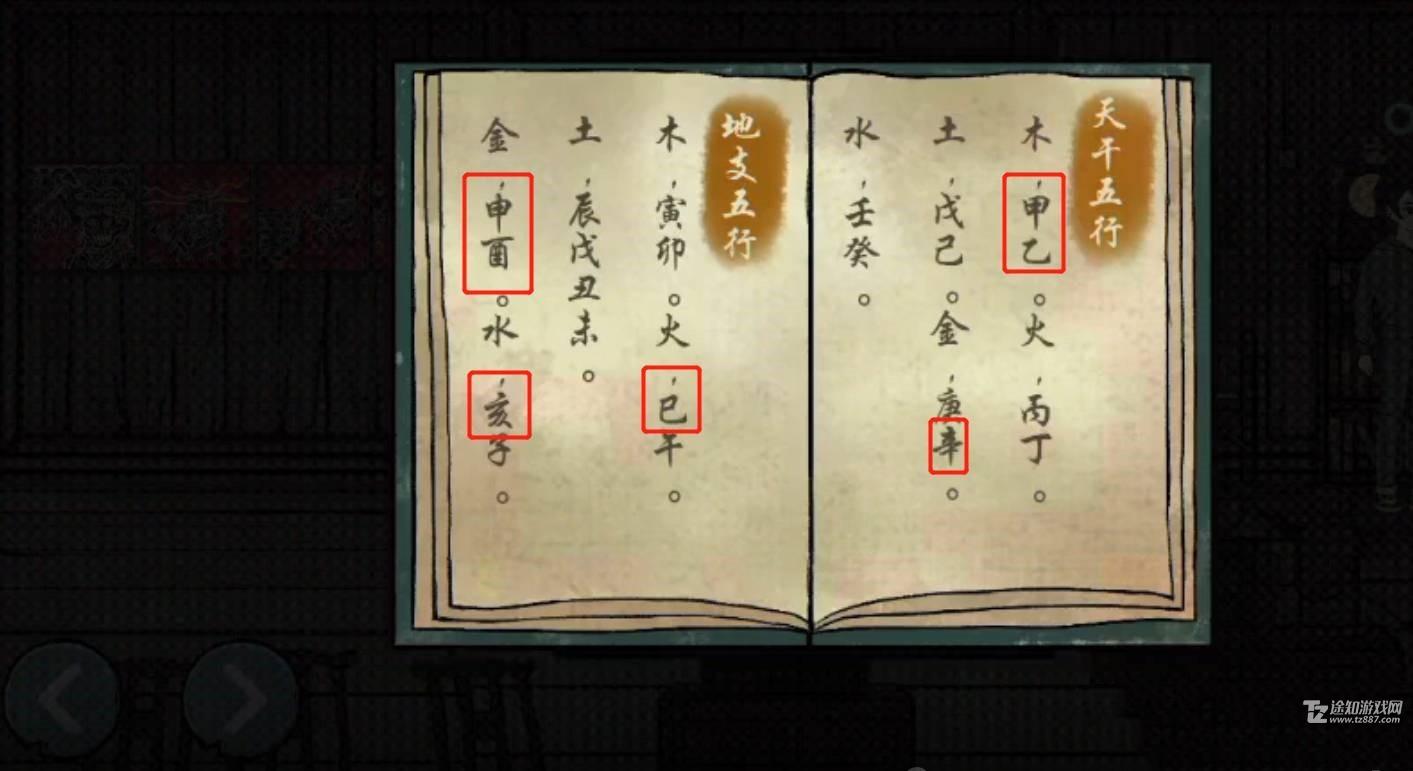 天干五行
木，甲乙。火，丙丁。
土，戊己。金，庚辛。
水，壬癸。
地支五行
木，寅卯。火，巳午。
土，辰戌丑未。
金，申酉。水，亥子。
途知游戏网
www.tz887.com